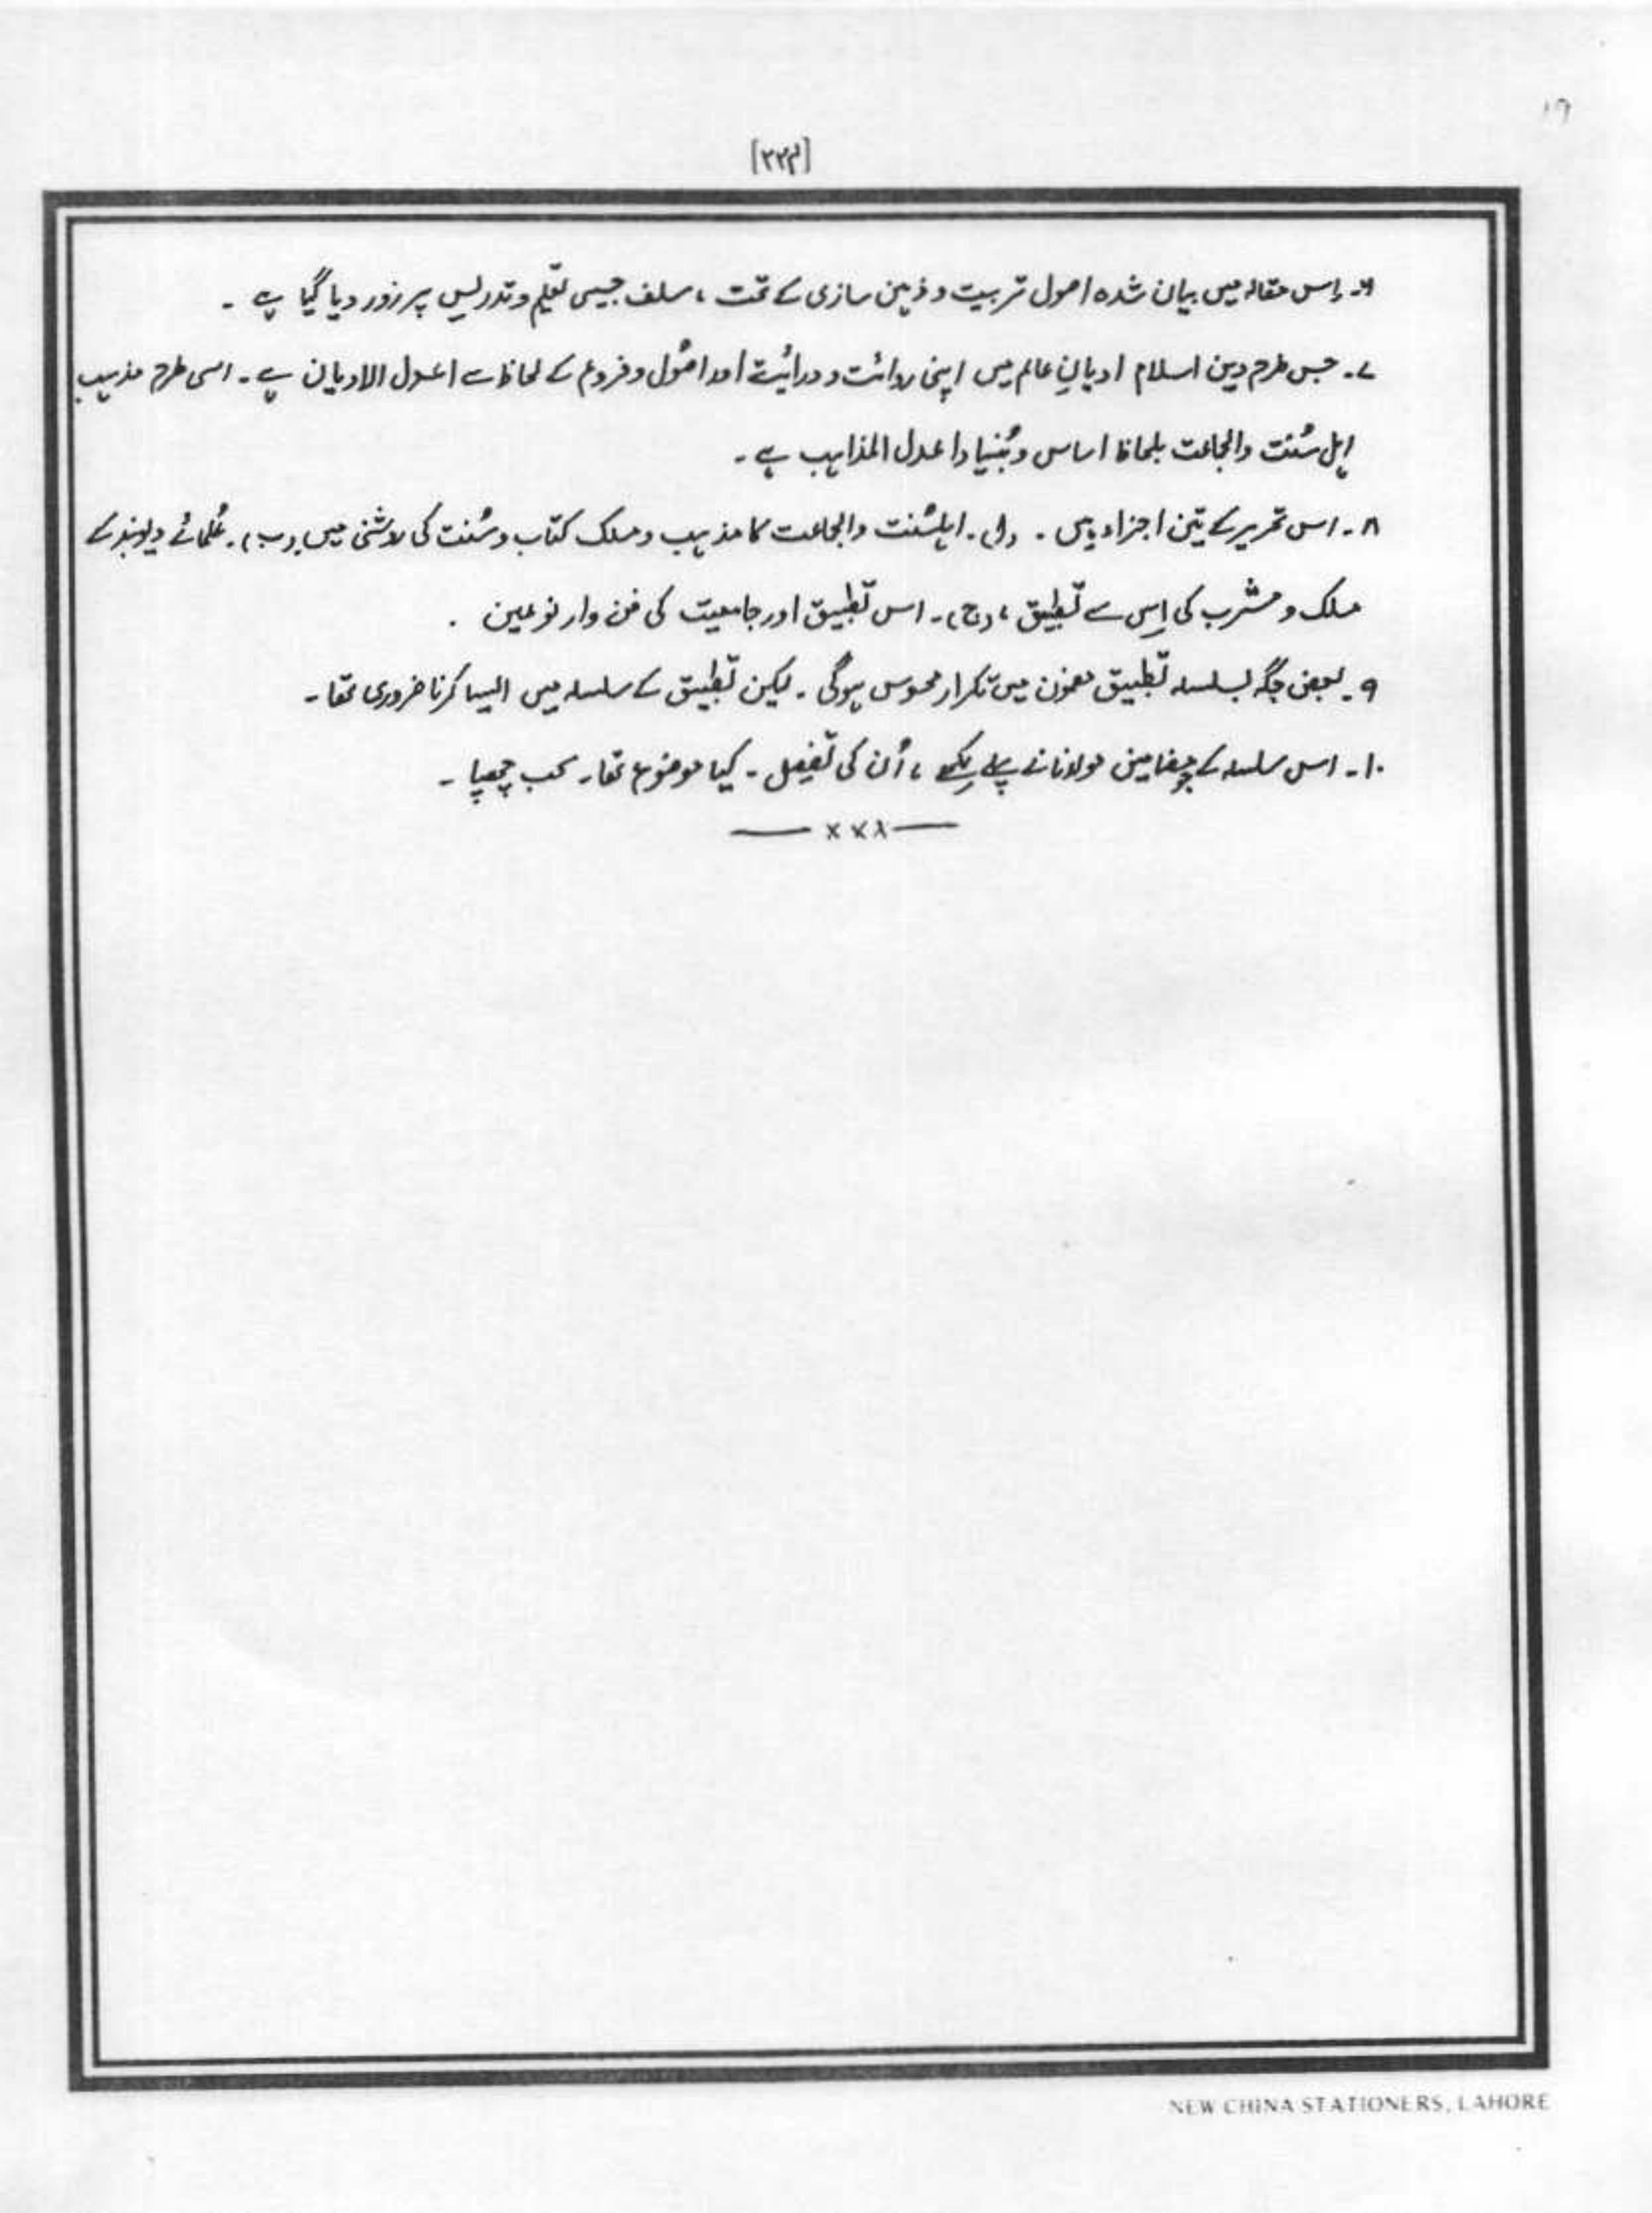 ۱۹
[۲۲۴]
۶۔ اِس مقالہ میں بیان شدہ اصول تربیت و ذہن سازی کے تحت ، سلف جیسی تعلیم و تدریس پر زور دیا گیا ہے ۔
۷۔ جس طرح دین اسلام ادیانِ عالم میں اپنی روائت و درائیت اور اصُول و فروع کے لحاظ سے اعدل الادیان ہے ۔ اسی طرح مذہب
اہل سُنت والجماعت بلحاظ اساس و بُنیاد اعدل المذاہب ہے ۔
۸۔ اس تحریر کے تین اجزاء ہیں ۔ (ا)۔ اہلسُنت والجماعت کا مذہب و مسلک کتاب و سُنت کی روشنی میں (ب)۔ عُلمائے دیوبند کے
مسلک و مشرب کی اِس سے تطبیق ، (ج)۔ اس تطبیق اور جامعیت کی فن وار نوعیں ۔
۹۔ بعض جگہ بسلسلہ تطبیق مضمون میں تکرار محسوس ہوگی ۔ لیکن تطبیق کے سلسلہ میں ایسا کرنا ضروری تھا ۔
۱۰۔ اس سلسلہ کے جو مضامین مولانا نے پہلے لکھے ، اُن کی تفصیل ۔ کیا موضوع تھا ۔ کب چھپا ۔
—— x x x ——
NEW CHINA STATIONERS, LAHORE